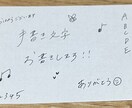 手書き文字
お書きします!!
ありがとう
A
B
C
D
E
12345